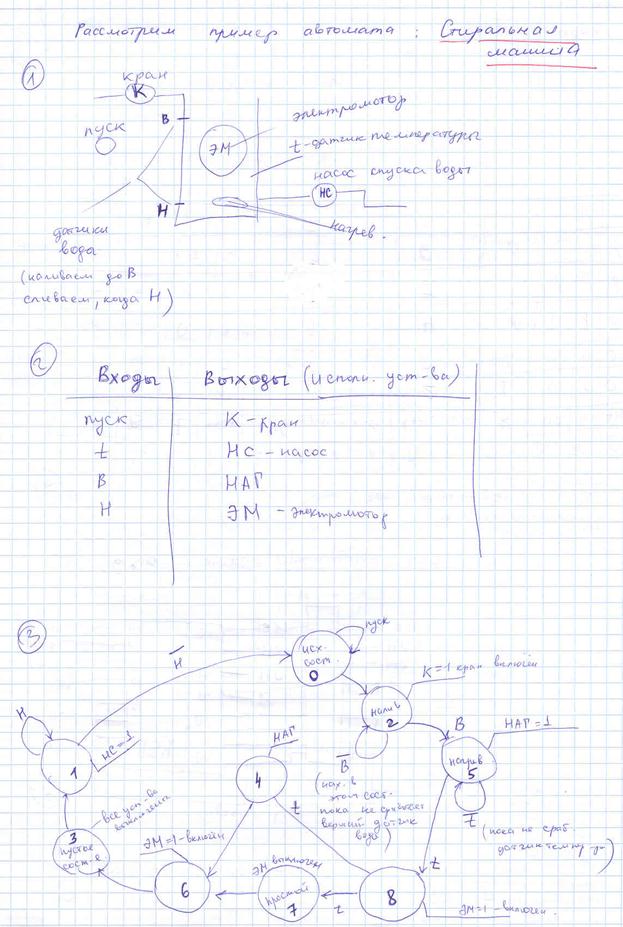 Рассмотрим пример автомата: Стиральная
машина
1
кран
К
пуск
В
ЭМ
электромотор
t-датчик температуры
насос спуска воды
НС
Н
нагрев.
датчики
вода
(наливаем до В
сливаем, когда Н)
2
Входы Выходы (исполн. уст-ва)
пуск К - кран
t НС - насос
В НАГ
Н ЭМ - электромотор
3
пуск
исх.
сост.
0
Н̅
К=1 кран включён
налив
2
В̅
(нах. в
этом сост.
пока не сработает
верхний датчик
воды)
В
НАГ=1
нагрев
5
t̅
(пока не сраб.
датчик темпер-ры)
Н
НС=1
1
НАГ
4
t
t
все уст-ва
выключены
3
пустое
сост-е
ЭМ=1-включён
6
ЭМ выключен
простой
7
t
8
ЭМ=1-включён.